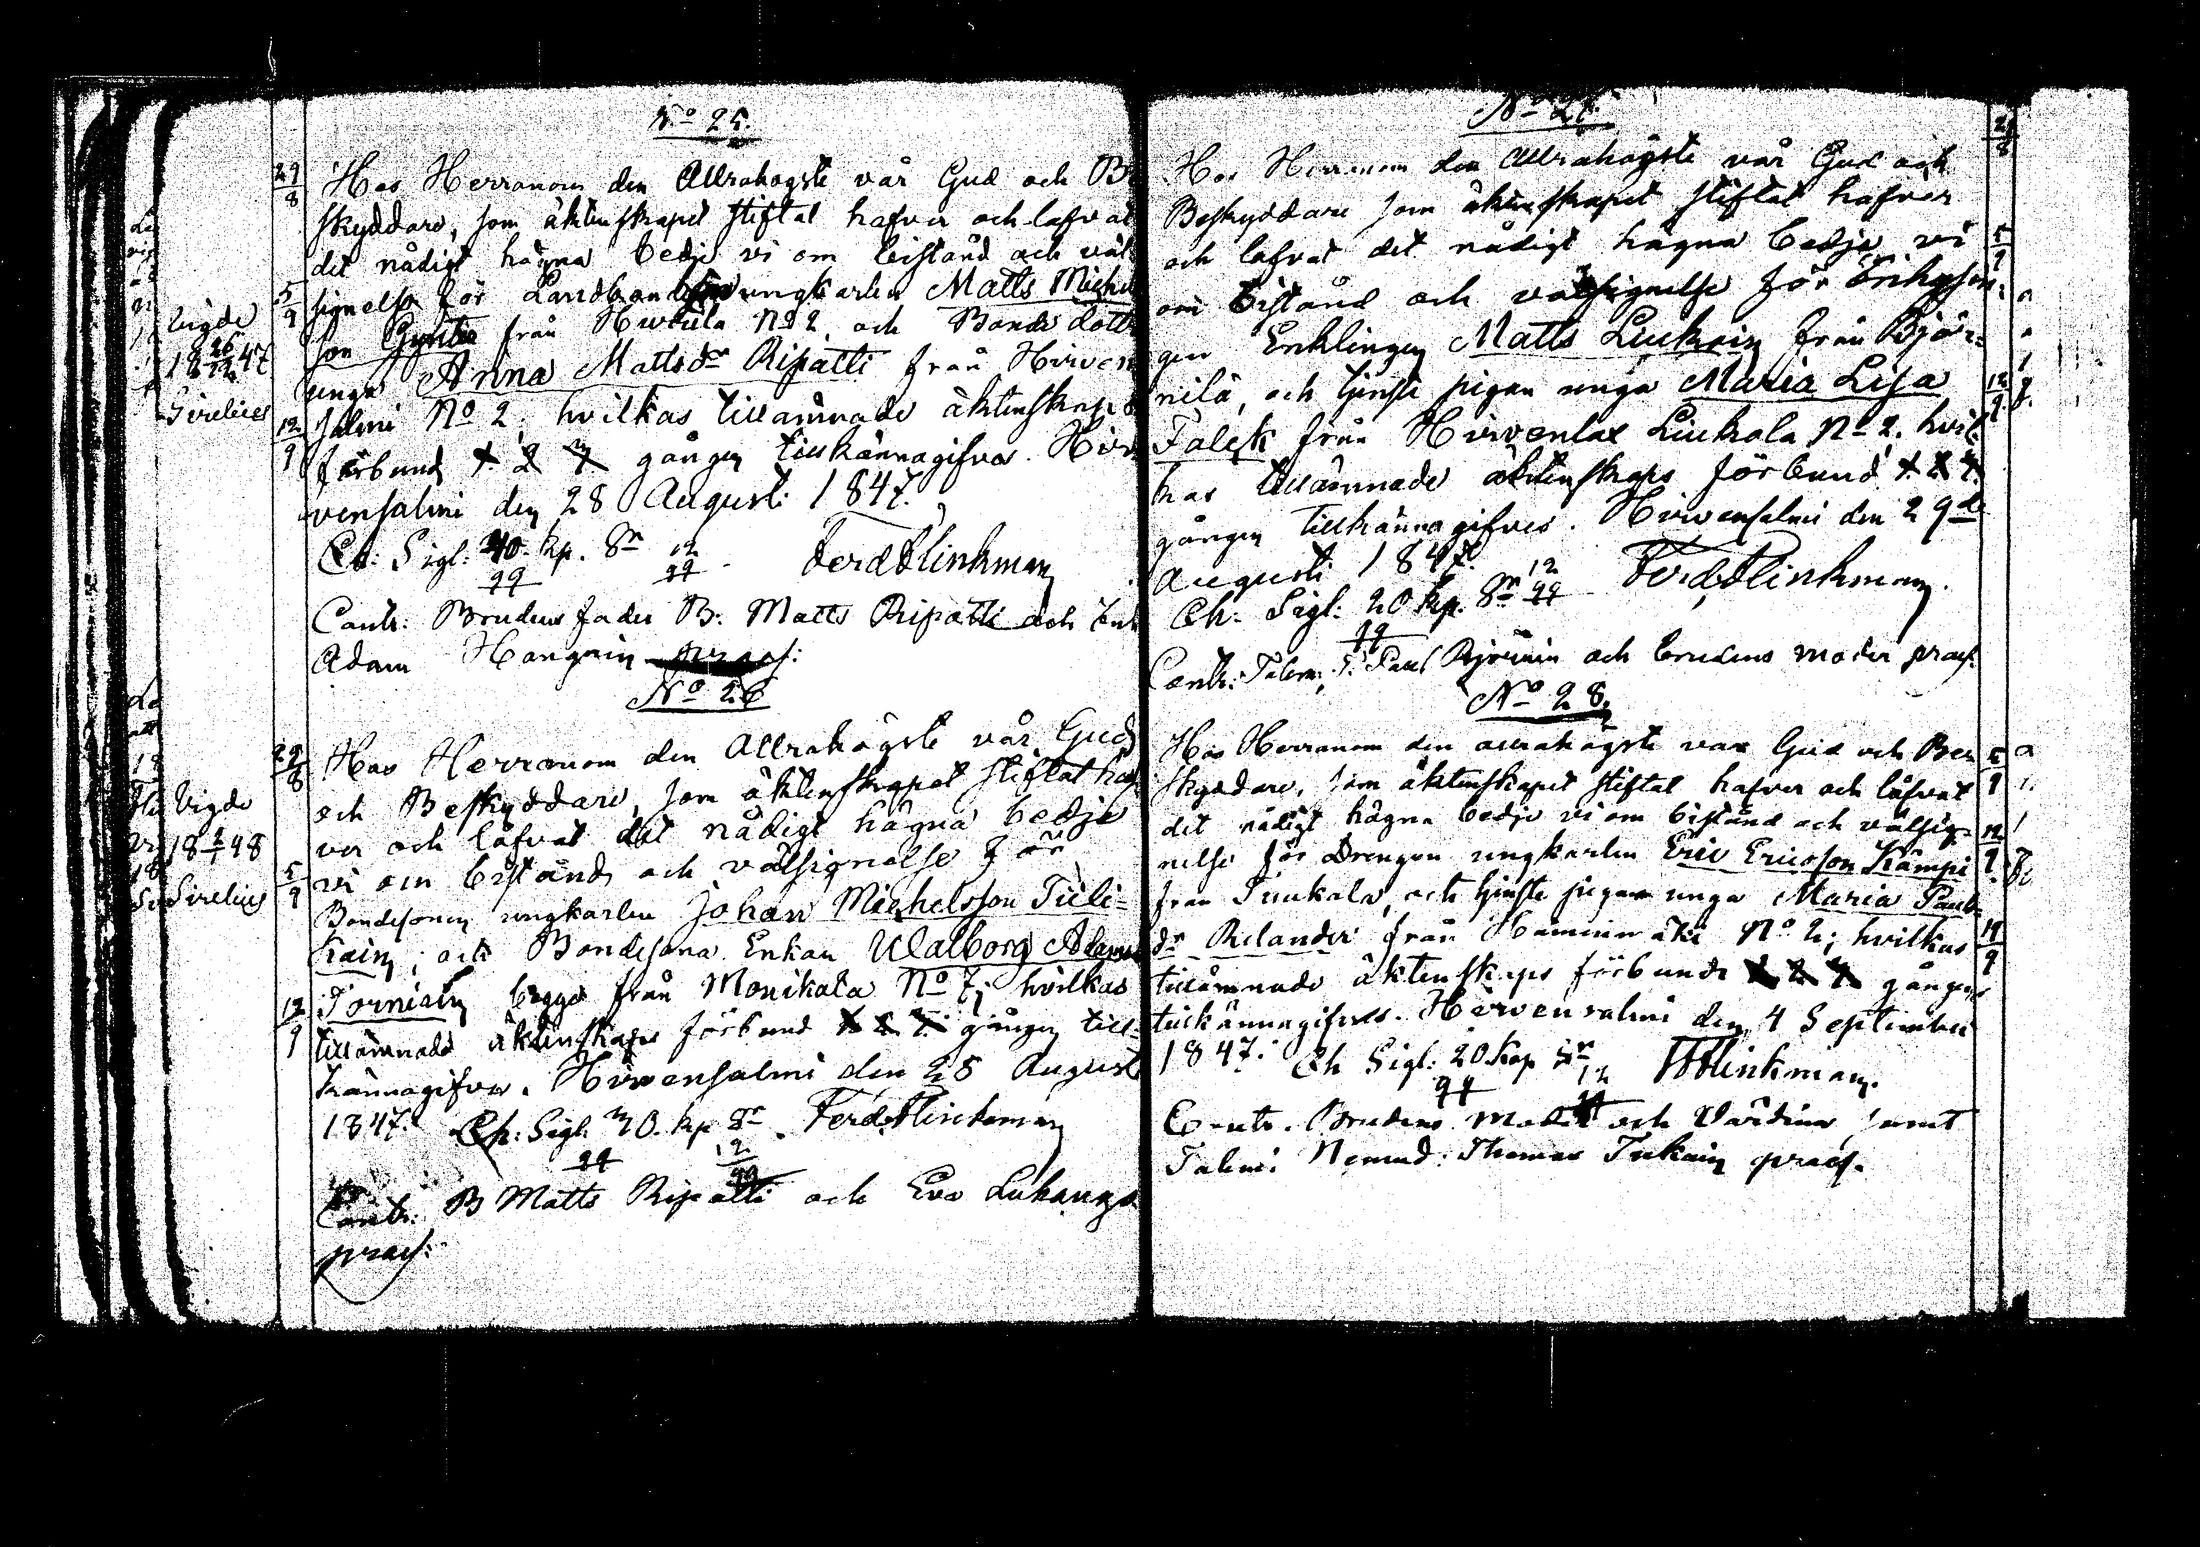 No 25.
29/8 Hos Herranom den Allrahögste vår Gud och Be
skyddare, som äktenskapet stiftat hafver och lofvat
det nådigt hägna bedje vi om bistånd och väl
5/9 signelse för ungkarlen Matts Michels
son från No 2 och Bonde dottr
unga Anna Mattsdr Ripatti från Hirven
12/9 salmi No 2. hvilkas tillämnade äktenskaps
förbund 1. 2 3 gången tillkännagifves. Hir
vensalmi den 28 Augusti 1847.
Ch: Sigl: kp. Sr Ferd Flinkman
Contr: Brudens fader B: Matts Ripatti och
Adam præs:
Vigde
18 26/12 47
Sirelius
No 26
29/8 Hos Herranom den Allrahögste vår Gud
och Beskyddare, som äktenskapet stiftat haf
ver och låfvat det nådigt hägna bedje
5/9 vi om bistånd och välsignelse för
Bondesonen ungkarlen Johan Michelsson Tieli-
kain, och Bondesona Enkan Walborg Adams
12/9 Torniain begge från Monikala No 7; hvilkas
tillämnade äktenskaps förbund 1 2 3 gången till-
kännagifves. Hirvensalmi den 28 August
1847. Ch: Sigl. 30. kp Sr. Ferd. Flinkman
Contr: B Matts Ripatti och Eva
præs:
Vigde
18 48
Sirelius
No 27.
Hos Herranom den Allrahögste vår Gud och
Beskyddare som äktenskapet stiftat hafver
och lofvat det nådigt hägna bedje vi 5/9
om bistånd och välsignelse för
Enklingen Matts Liukoin från Björ=
nilä, och tjenste pigan unga Maria Lisa 12/9
Falck från Hirvenlax Liukola No 2. hvil
kas tillämnade äktenskaps förbund 1. 2 3.
gången tillkännagifves. Hirvensalmi den 29de
Augusti 1847. Ferd. Flinkman.
Ch: Sigl: 20 kp. Sr 12
Contr: Talem: Paul Björnin och brudens moder præs.
No 28.
Hos Herranom den allrahögste vår Gud och Be= 5/9
skyddare, som äktenskapet stiftat hafver och låfvat
det nådigt hägna bedje vi om bistånd och välsig= 12/9
nelse för Drengen ungkarlen Eric Ericsson Kämpi
från och tjenste pigan unga Maria Pauls
dr Relander från No 2; hvilkas 19/9
tillämnade äktenskaps förbund 1 2 3 gången
tillkännagifves. Hirvensalmi den 4 September
1847. Ch Sigl: 20 Kop Sr Flinkman.
Contr. Brudens Moder och Värdina samt
Talem: Nämnd: Thomas præs.